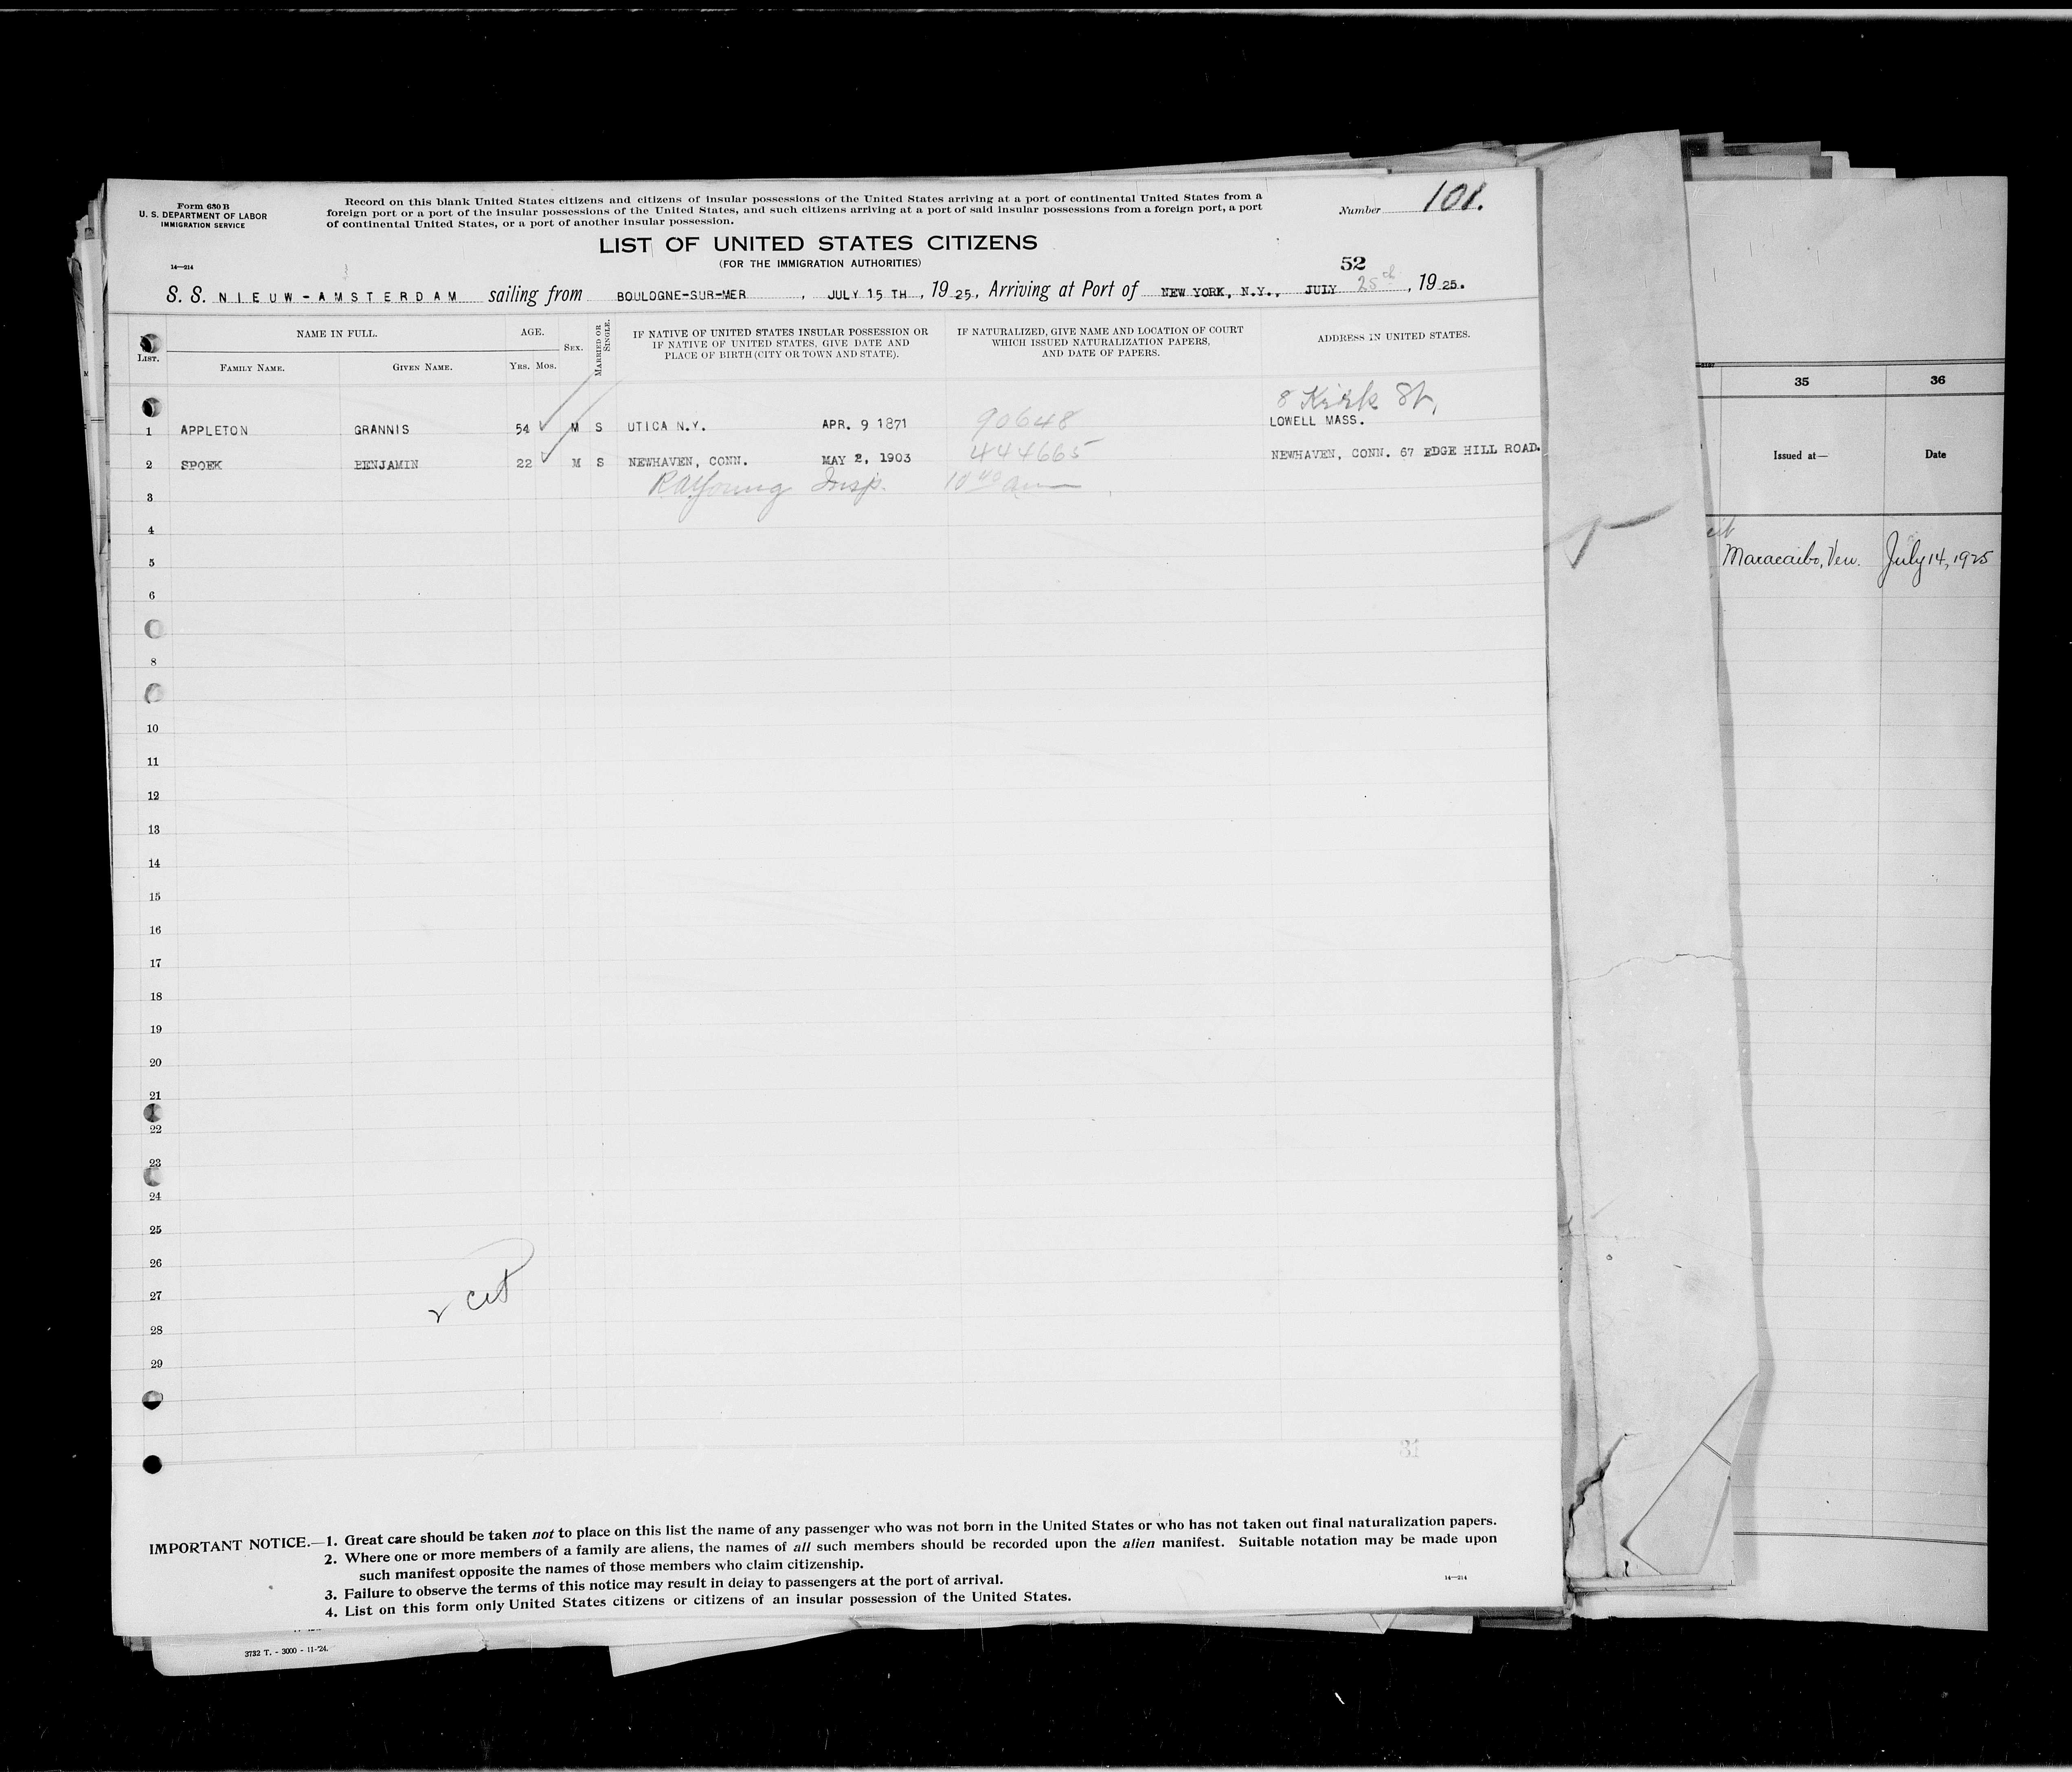 Form 630 B
U. S. DEPARTMENT OF LABOR
IMMIGRATION SERVICE
14—214
Record on this blank United States citizens and citizens of insular possessions of the United States arriving at a port of continental United States from a
foreign port or a port of the insular possessions of the United States, and such citizens arriving at a port of said insular possessions from a foreign port, a port
of continental United States, or a port of another insular possession.
Number 101.
LIST OF UNITED STATES CITIZENS
(FOR THE IMMIGRATION AUTHORITIES)
52
S. S. NIEUW-AMSTERDAM sailing from BOULOGNE-SUR-MER , JULY 15 TH , 1925, Arriving at Port of NEW YORK, N.Y., JULY 25th , 1925.
LIST.
NAME IN FULL.
FAMILY NAME.
GIVEN NAME.
AGE.
YRS. MOS.
SEX.
MARRIED OR SINGLE.
IF NATIVE OF UNITED STATES INSULAR POSSESSION OR
IF NATIVE OF UNITED STATES, GIVE DATE AND
PLACE OF BIRTH (CITY OR TOWN AND STATE).
IF NATURALIZED, GIVE NAME AND LOCATION OF COURT
WHICH ISSUED NATURALIZATION PAPERS,
AND DATE OF PAPERS.
ADDRESS IN UNITED STATES.
8 Kirk St,
1 APPLETON GRANNIS 54 M S UTICA N.Y. APR. 9 1871 90648 LOWELL MASS.
2 SPOEK BENJAMIN 22 M S NEWHAVEN, CONN. MAY 2, 1903 444665 NEWHAVEN, CONN. 67 EDGE HILL ROAD.
RAYoung Insp. 10 40 am
3
4
5
6
8
10
11
12
13
14
15
16
17
18
19
20
21
22
23
24
25
26
27
28
29
2 cit
31
IMPORTANT NOTICE.—1. Great care should be taken not to place on this list the name of any passenger who was not born in the United States or who has not taken out final naturalization papers.
2. Where one or more members of a family are aliens, the names of all such members should be recorded upon the alien manifest. Suitable notation may be made upon
such manifest opposite the names of those members who claim citizenship.
3. Failure to observe the terms of this notice may result in delay to passengers at the port of arrival.
4. List on this form only United States citizens or citizens of an insular possession of the United States.
14—214
3732 T. - 3000 - 11-'24.
35
36
Issued at—
Date
Maracaibo, Ven. July 14, 1925